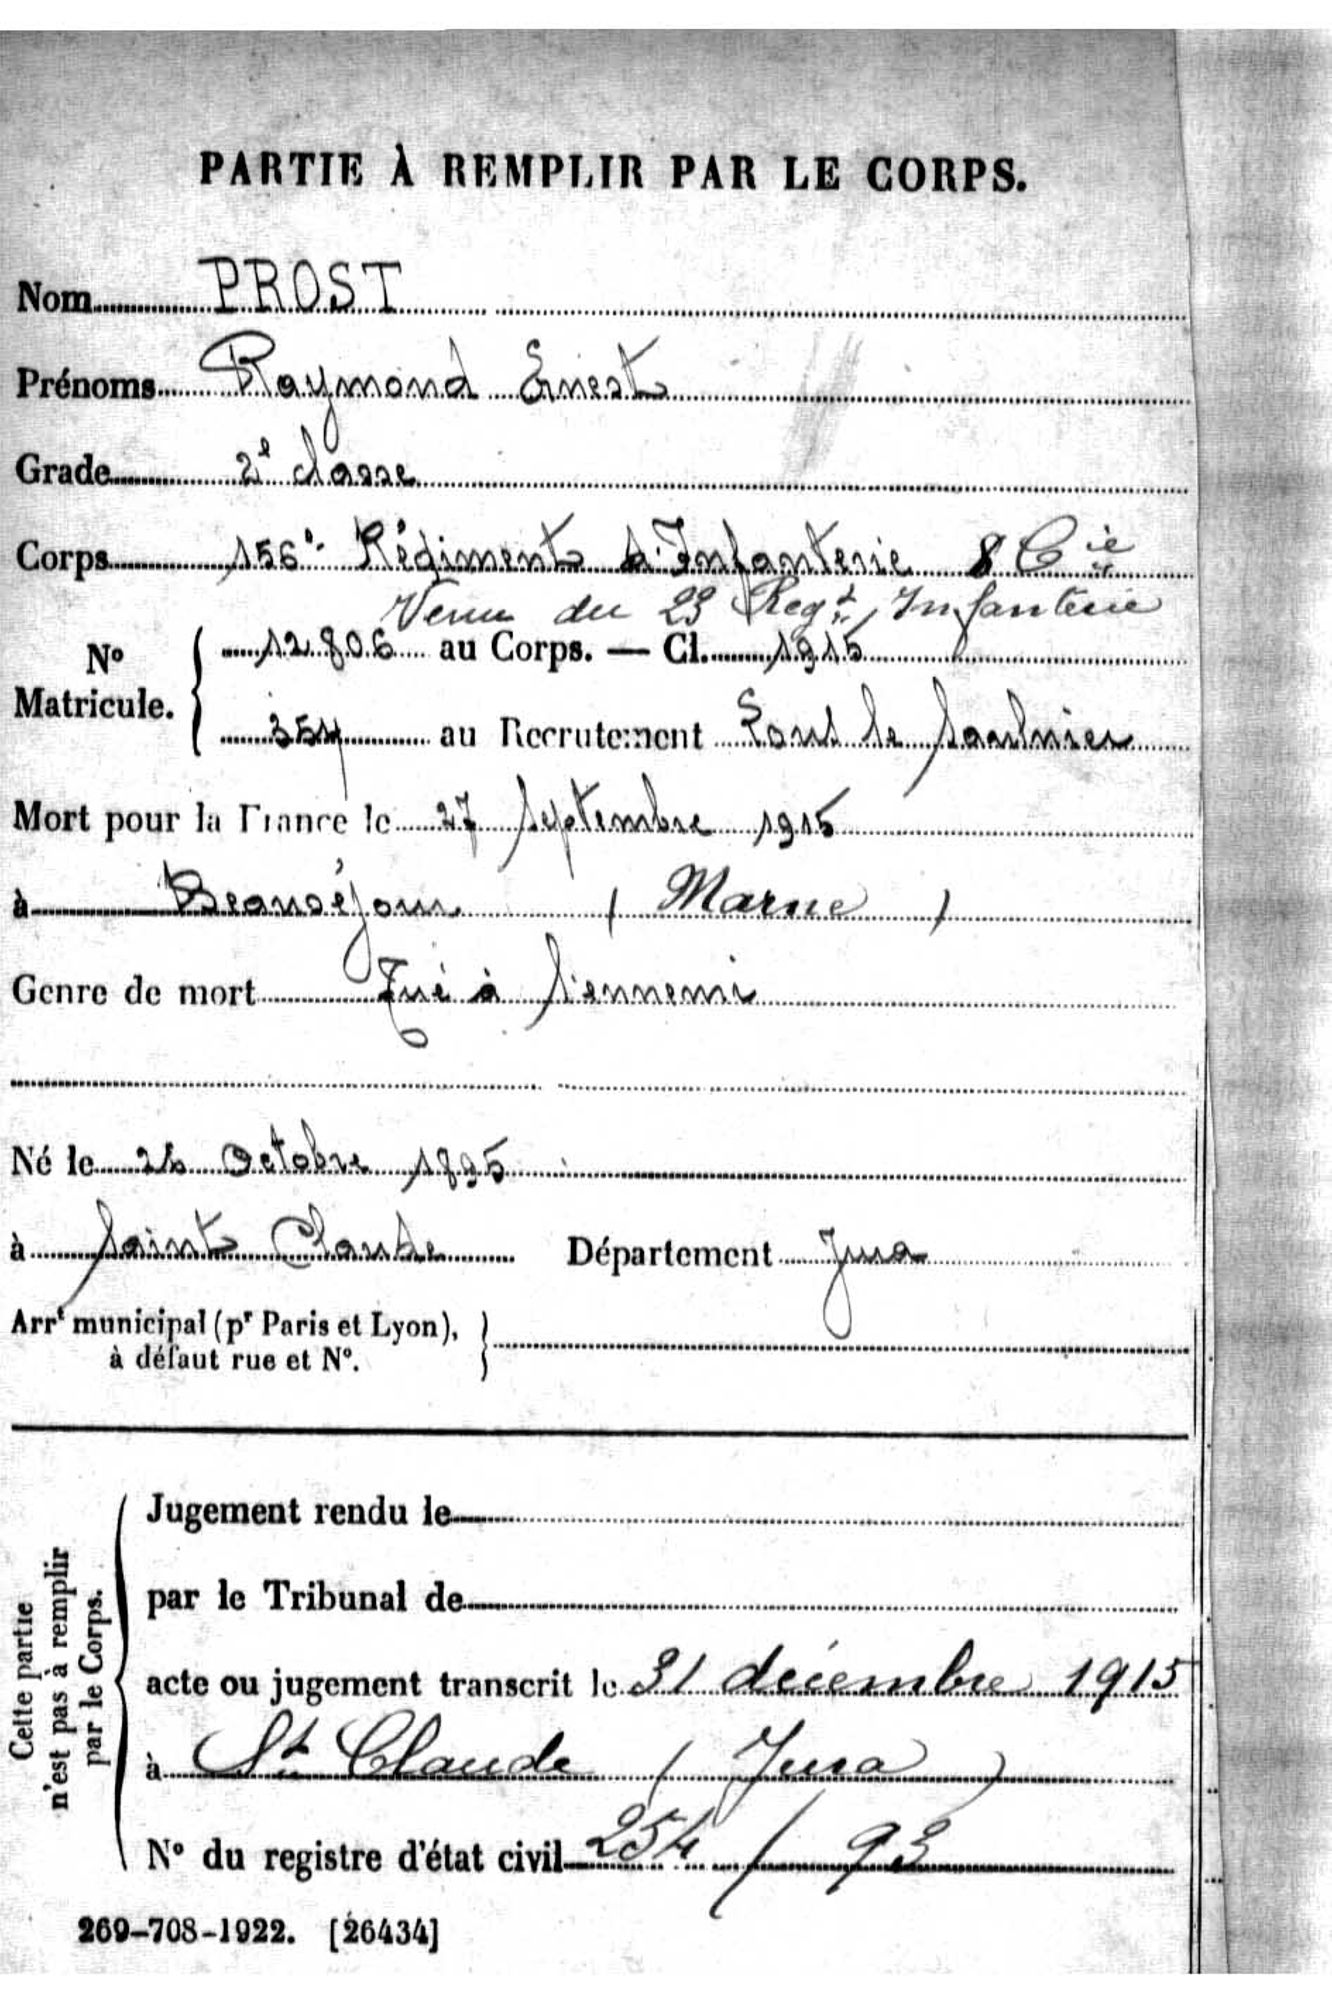 PARTIE À REMPLIR PAR LE CORPS.
Nom PROST
Prénoms Raymond Ernest
Grade 2e classe
Corps 156e Régiment d'Infanterie 8 Cie
Venu du 23 Regt Infanterie
No Matricule. 12806 au Corps. — Cl. 1915
354 au Recrutement Lons le Saulnier
Mort pour la France le 27 Septembre 1915
à Beauséjour (Marne)
Genre de mort Tué à l'ennemi
Né le Octobre 1895
à Saint Claude Département Jura
Arrt municipal (pr Paris et Lyon),
à défaut rue et No.
Cette partie n'est pas à remplir par le Corps.
Jugement rendu le
par le Tribunal de
acte ou jugement transcrit le 31 décembre 1915
à St Claude (Jura)
No du registre d'état civil 254 / 93
269-708-1922. [26434]